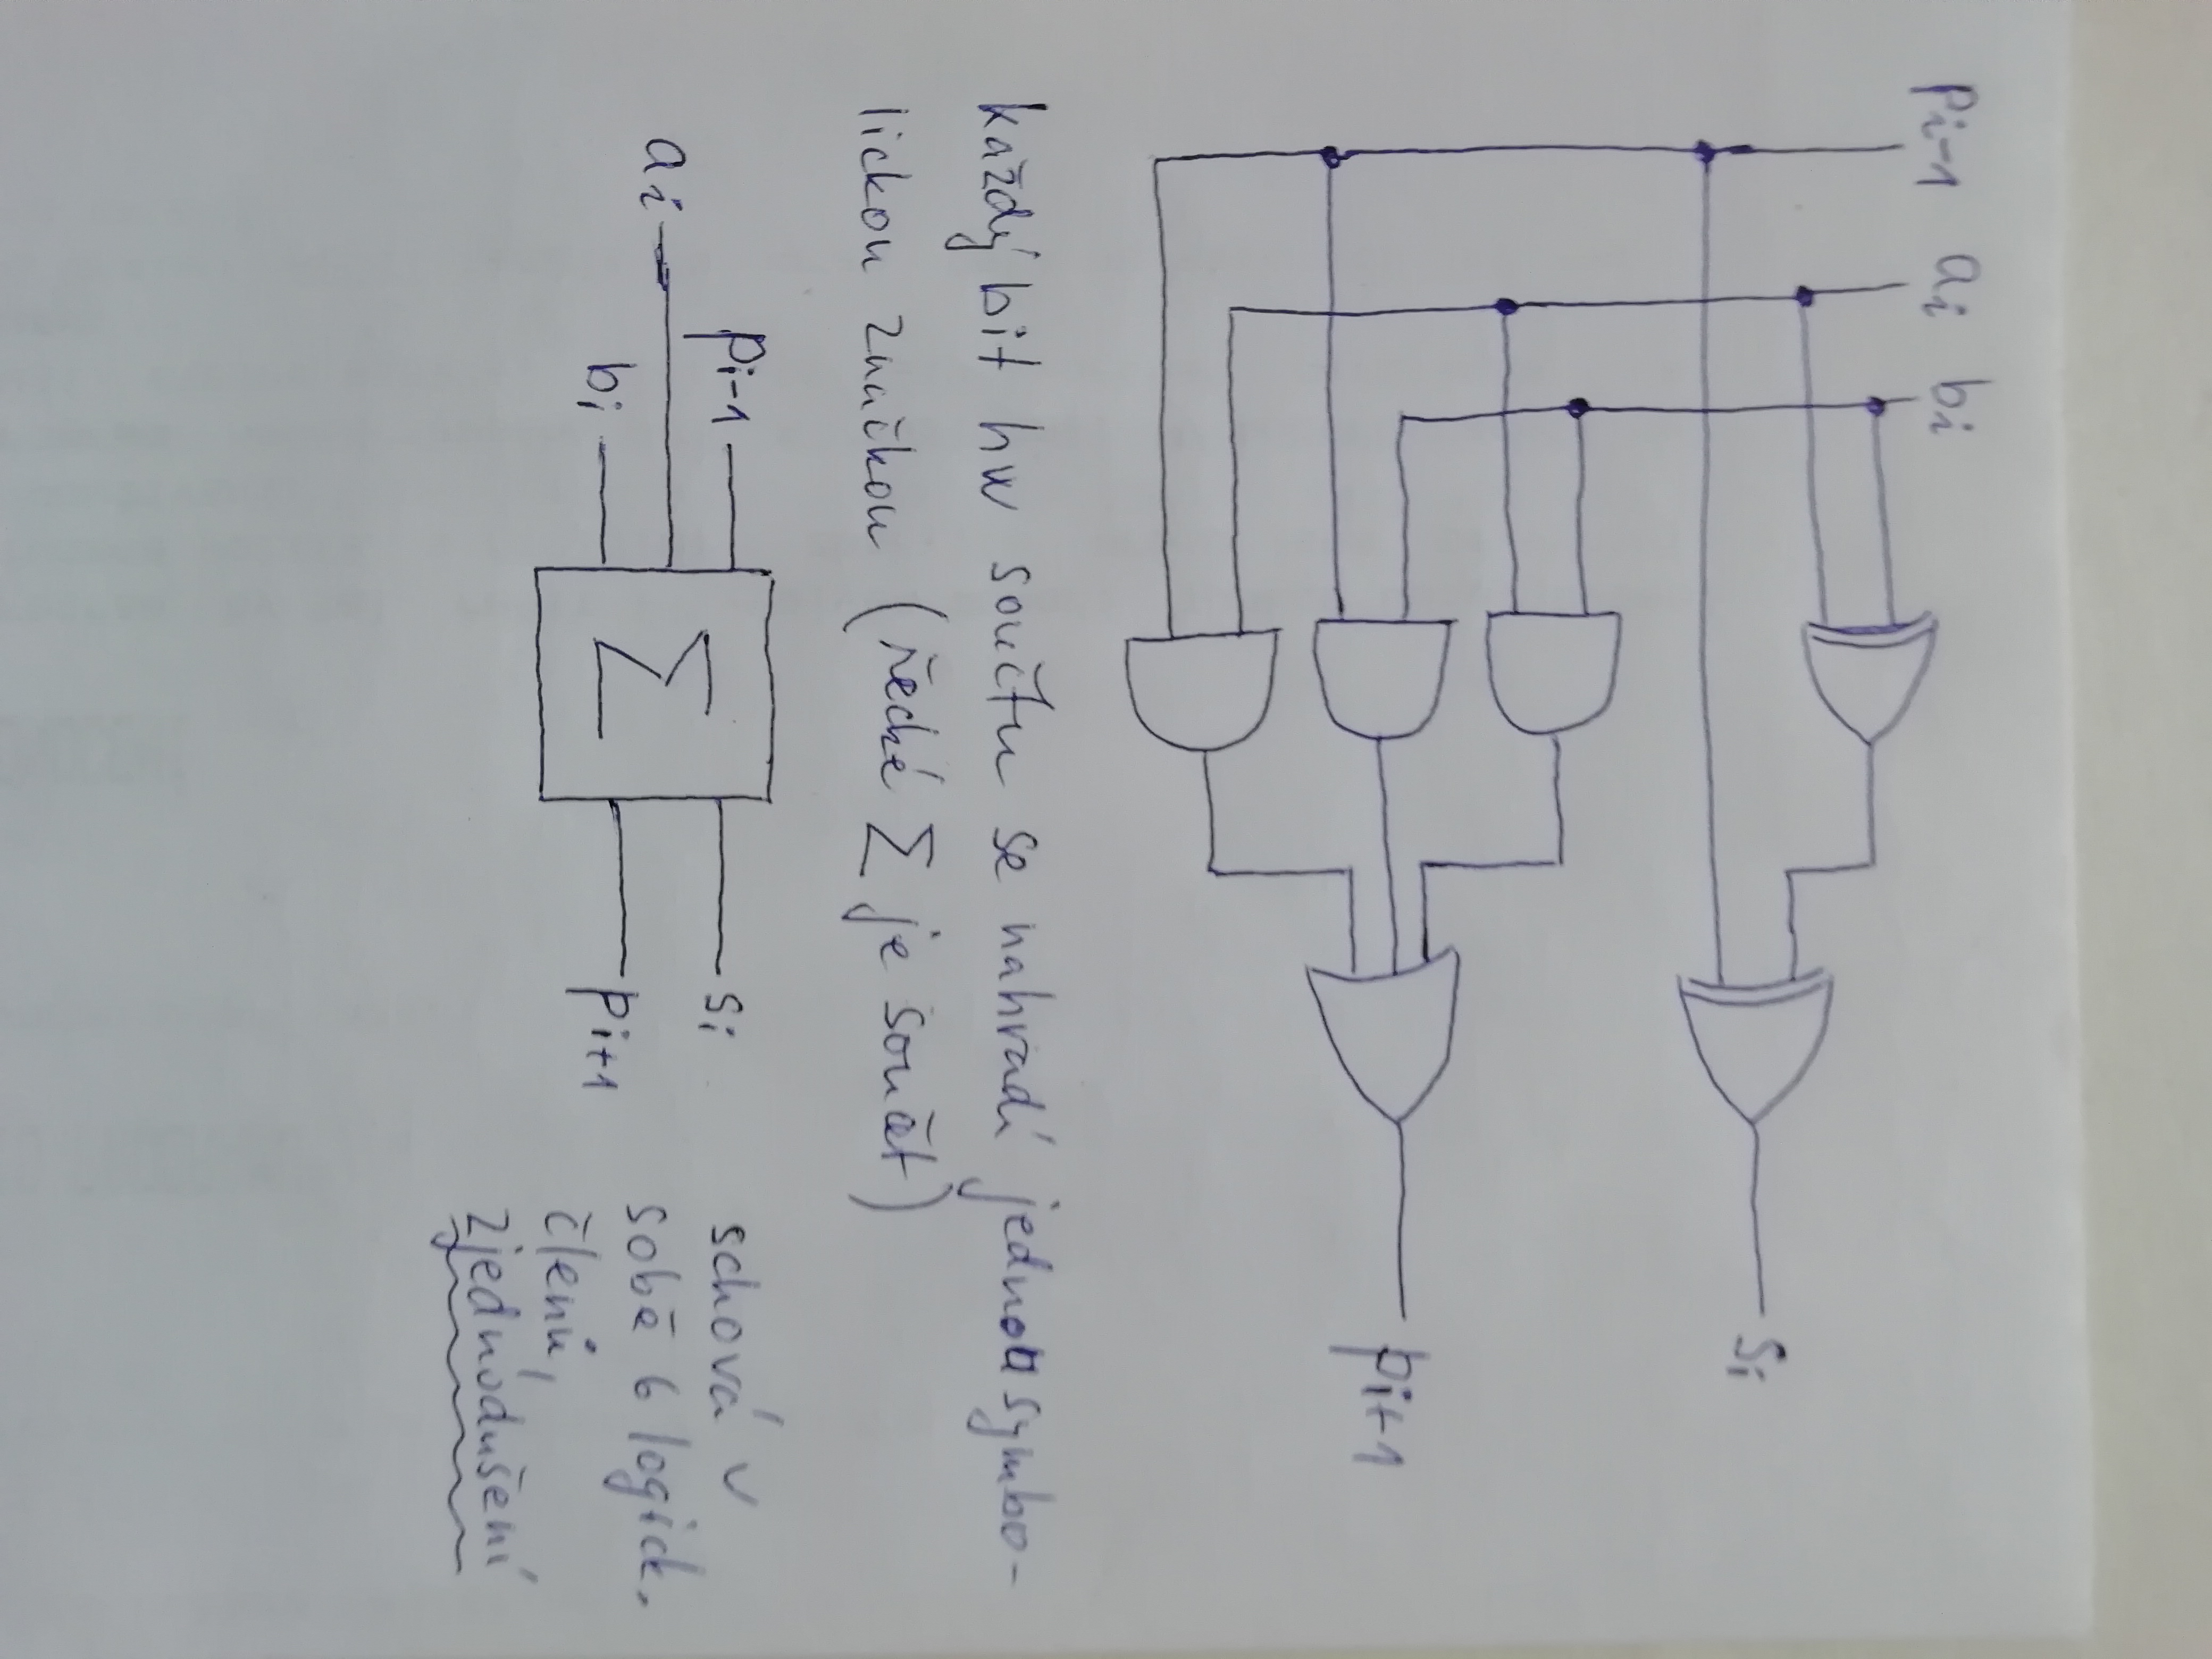 pi-1 ai bi
si
pi+1
každý bit hw součtu se nahradí jednou symbo-
lickou značkou (řecké Σ je součet)
pi-1
ai
bi
Σ
si
pi+1
schová v
sobě 6 logick.
členů,
zjednodušení